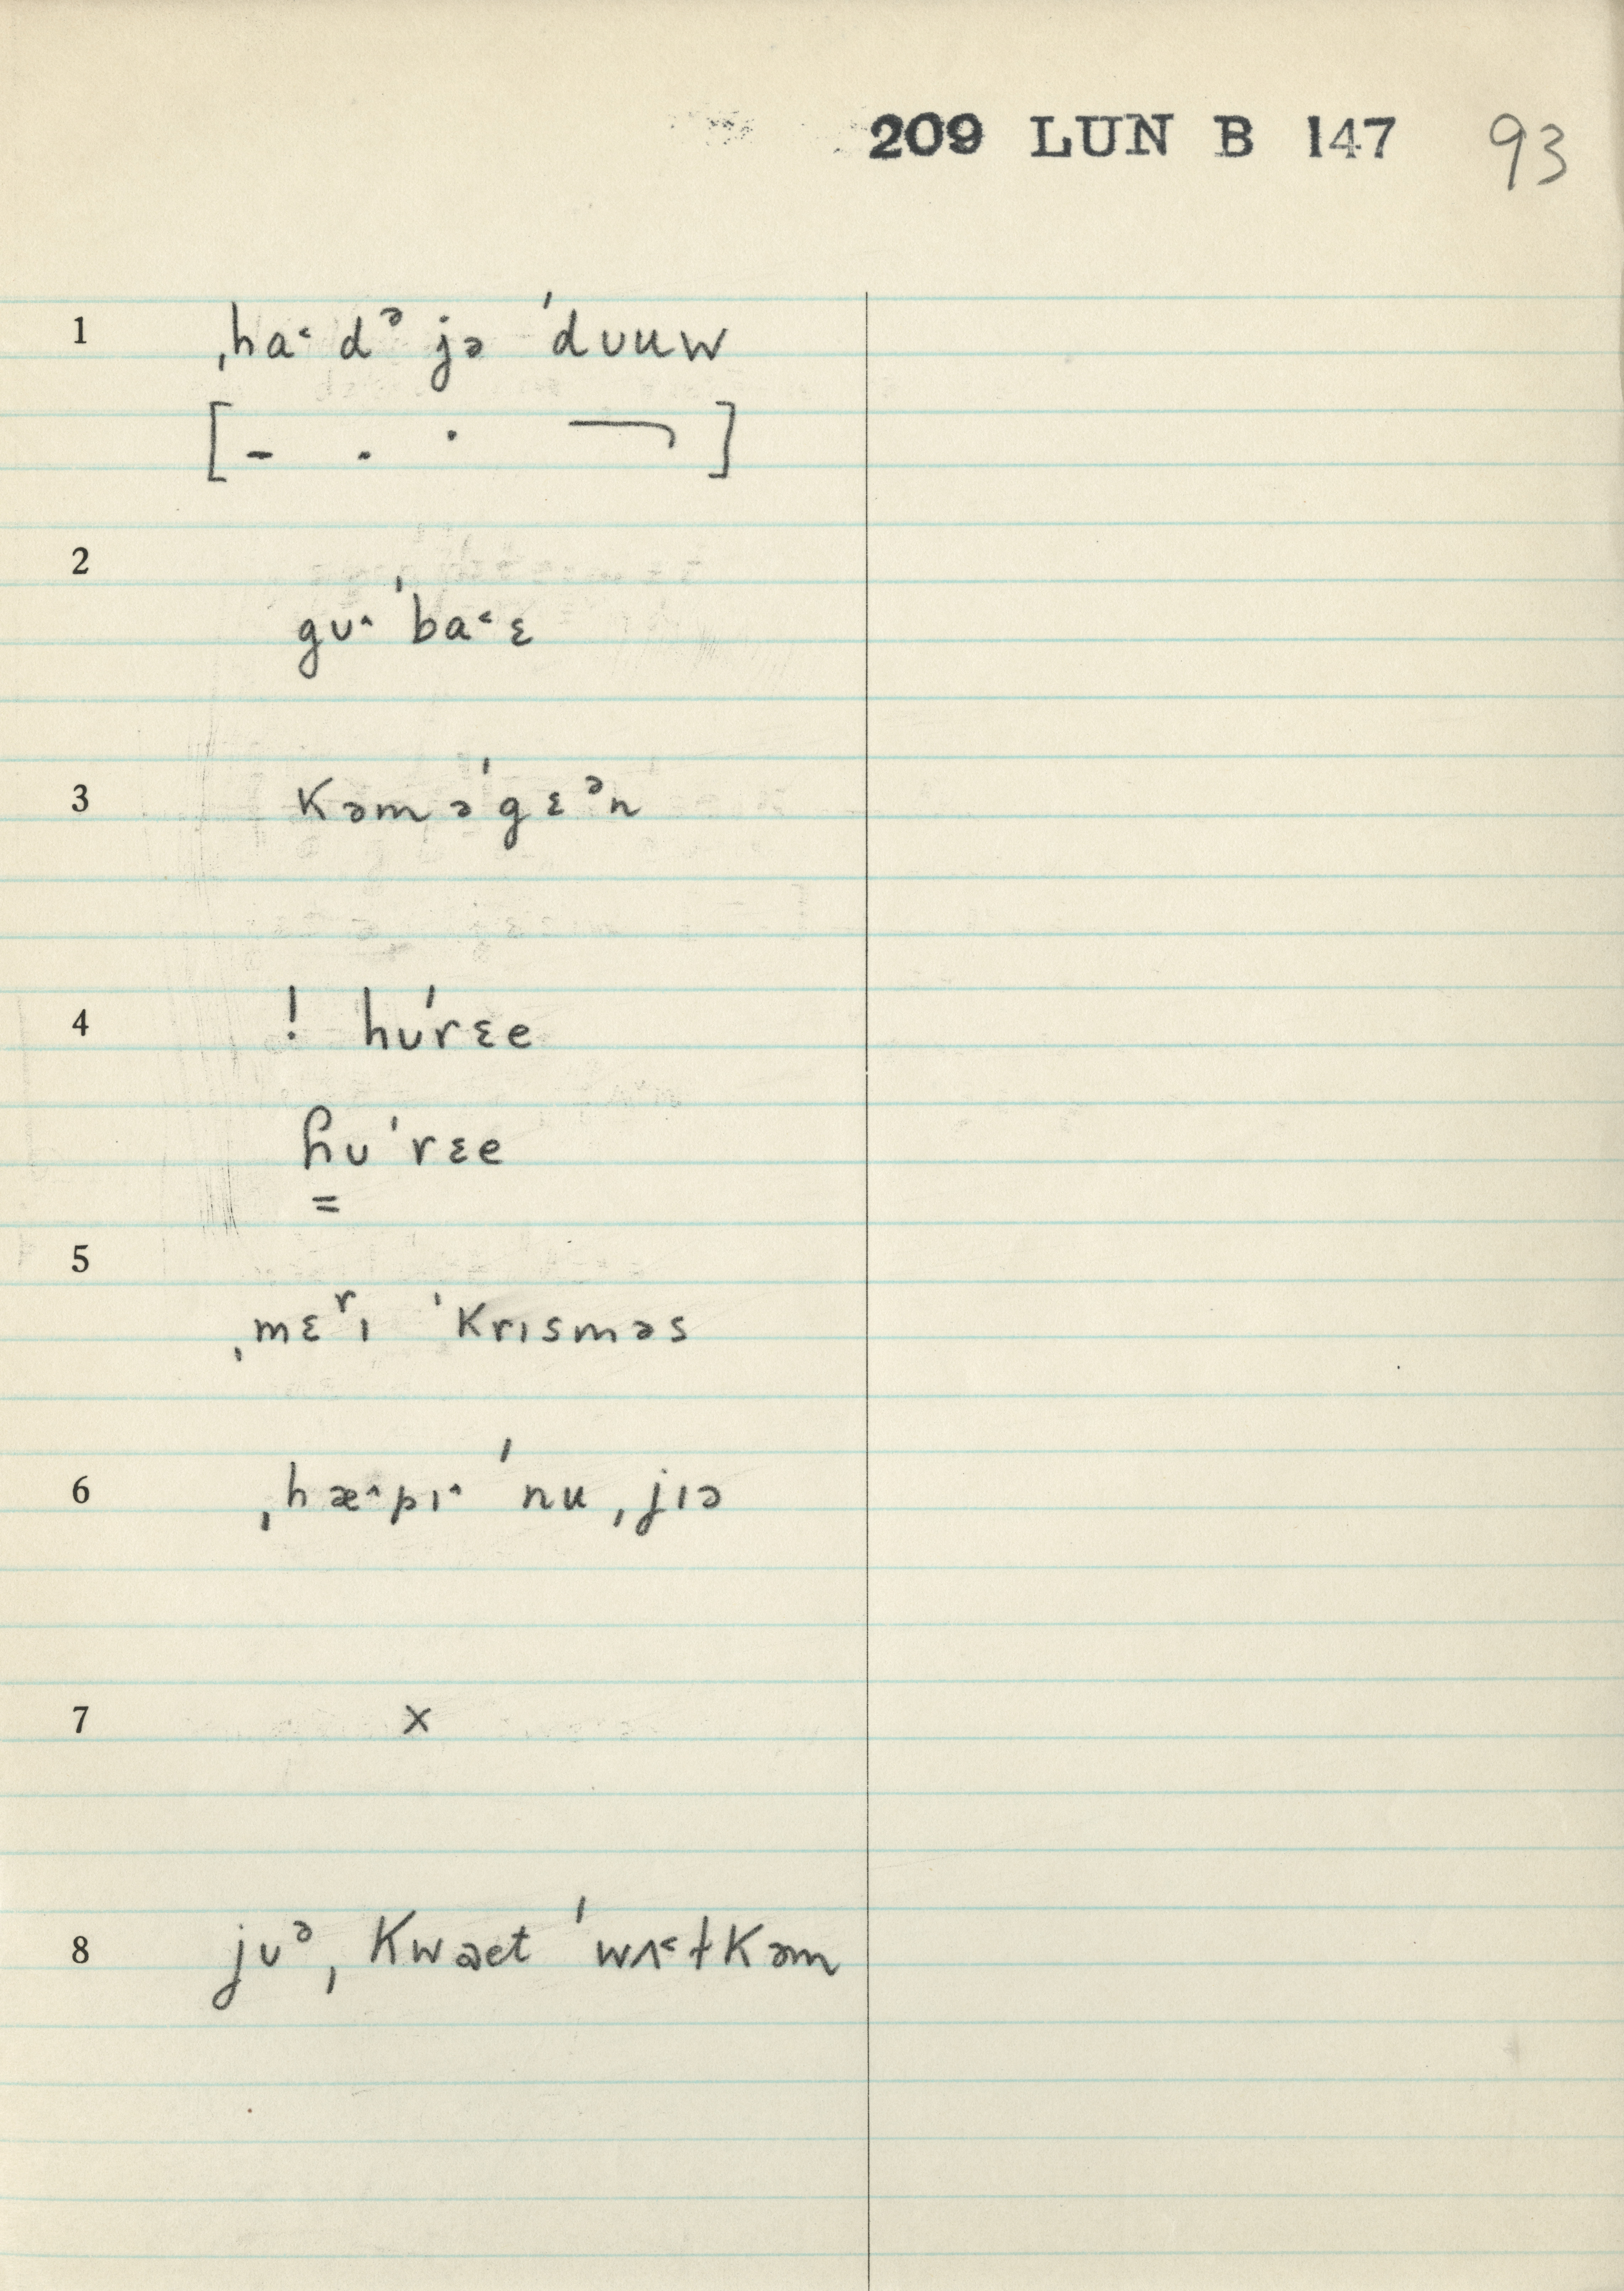 209 LUN B 147 93
1 ˌha˂ dᵊ jə ˈdᴜuw
[– . · ‾‾˥ ]
2
gᴜ˄ ˈba˂ɛ
3 kəməˈgɛᵊn
4 ! hᴜˈrɛe
ɦᴜˈrɛe
=
5
ˌmɛʳɪ ˈkrɪsməs
6 ˌhæ˄pɪ˄ ˈnu ˌjɪə
7 x
8 jᴜᵊ ˌkwaet ˈwʌ˂ɫkəm